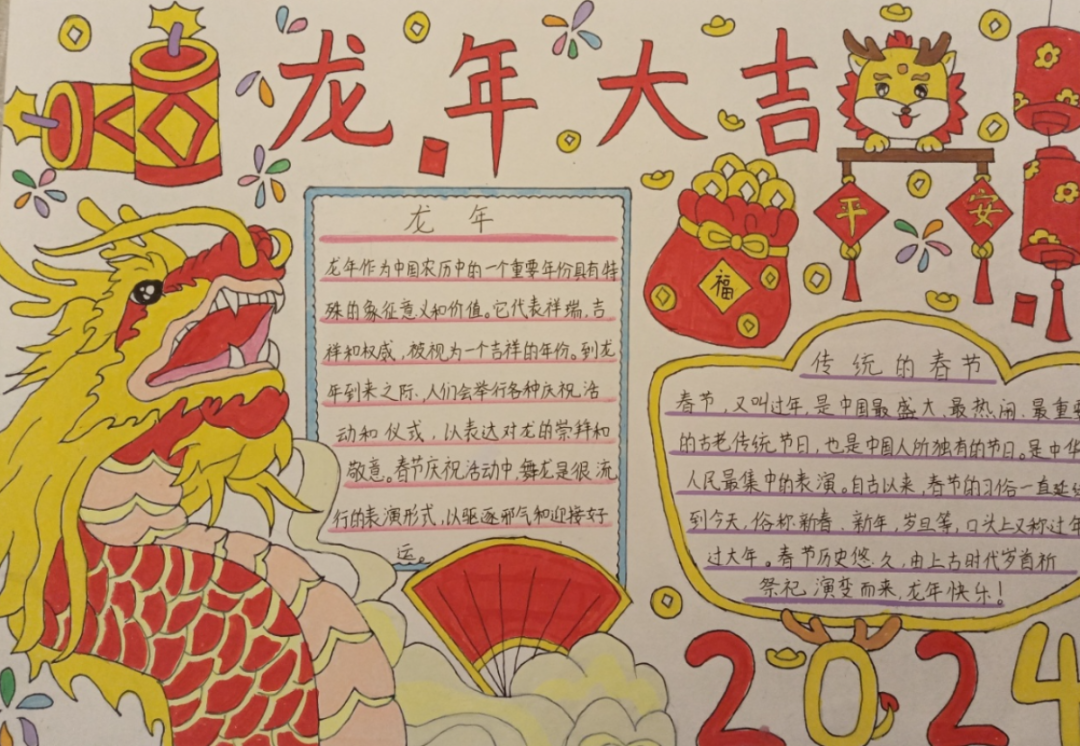 龙年大吉
平 安
福
龙 年
龙年作为中国农历中的一个重要年份具有特
殊的象征意义和价值。它代表祥瑞，吉
祥和权威，被视为一个吉祥的年份。到龙
年到来之际、人们会举行各种庆祝活
动和仪式，以表达对龙的崇拜和
敬意。春节庆祝活动中，舞龙是很流
行的表演形式，以驱逐邪气和迎接好
运。
传统的春节
春节，又叫过年，是中国最盛大、最热闹、最重要
的古老传统节日，也是中国人所独有的节日。是中华
人民最集中的表演。自古以来，春节的习俗一直延续
到今天，俗称新春、新年，岁旦等，口头上又称过年
过大年。春节历史悠久，由上古时代岁首祈
祭祀演变而来，龙年快乐！
2024